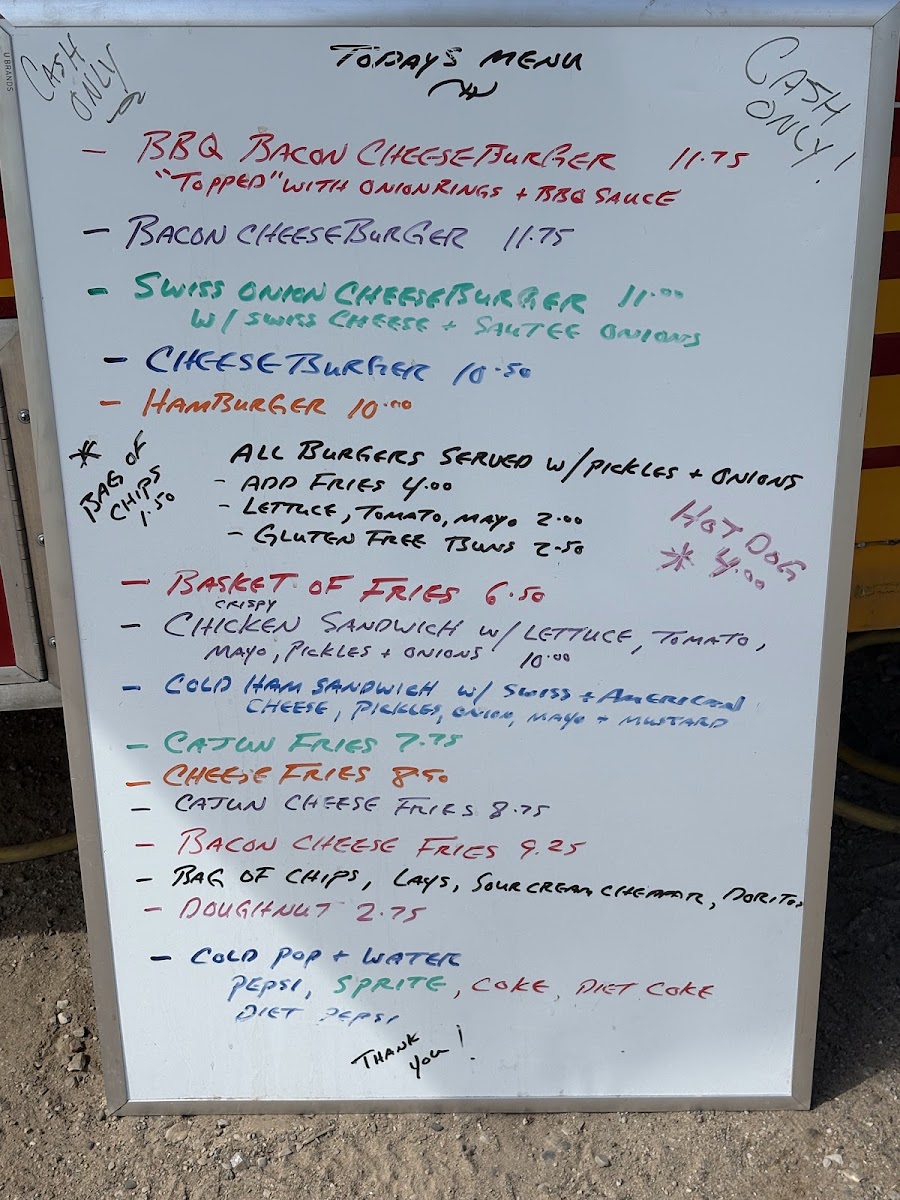 U BRANDS
CASH
ONLY
TODAYS MENU
CASH
ONLY!
- BBQ BACON CHEESEBURGER 11.75
"TOPPED" WITH ONION RINGS + BBQ SAUCE
- BACON CHEESEBURGER 11.75
- SWISS ONION CHEESEBURGER 11.00
W/ SWISS CHEESE + SAUTEE ONIONS
- CHEESEBURGER 10.50
- HAMBURGER 10.00
* BAG OF
CHIPS
1.50
ALL BURGERS SERVED W/ PICKLES + ONIONS
- ADD FRIES 4.00
- LETTUCE, TOMATO, MAYO 2.00
- GLUTEN FREE BUNS 2.50
HOT DOG
* 4.00
- BASKET OF FRIES 6.50
CRISPY
- CHICKEN SANDWICH W/ LETTUCE, TOMATO,
MAYO, PICKLES + ONIONS 10.00
- COLD HAM SANDWICH W/ SWISS + AMERICAN
CHEESE, PICKLES, ONION, MAYO + MUSTARD
- CAJUN FRIES 7.75
- CHEESE FRIES 8.50
- CAJUN CHEESE FRIES 8.75
- BACON CHEESE FRIES 9.25
- BAG OF CHIPS, LAYS, SOUR CREAM CHEDDAR, DORITOS
- DOUGHNUT 2.75
- COLD POP + WATER
PEPSI, SPRITE, COKE, DIET COKE
DIET PEPSI
THANK
YOU!